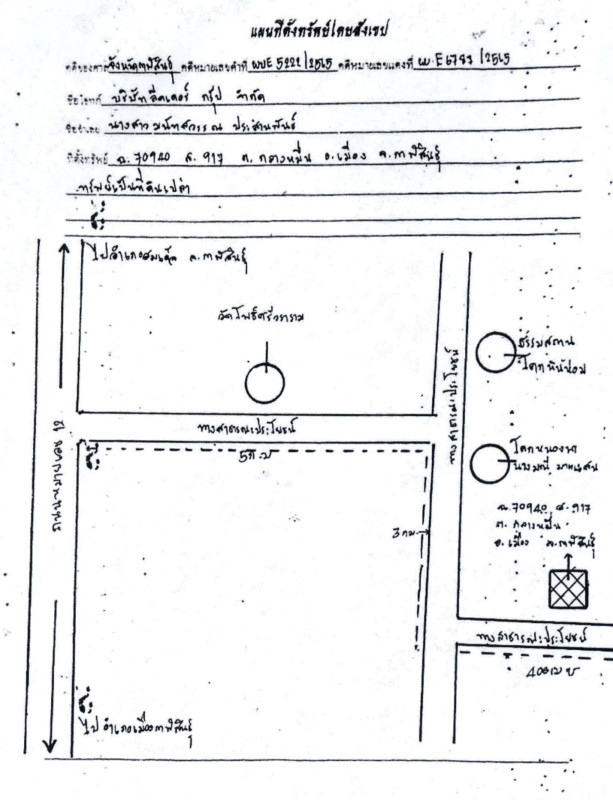 แผนที่ตั้งทรัพย์โดยสังเขป
คดีของศาลจังหวัดกาฬสินธุ์ คดีหมายเลขดำที่ ผบE 5222/2565 คดีหมายเลขแดงที่ ผบ.E 6783/2565
ชื่อโจทก์ บริษัท ลีดเดอร์ กรุ๊ป จำกัด
ชื่อจำเลย นางสาว
ที่ตั้งทรัพย์ ฉ.70940 ล.917 ต.กลางหมื่น อ.เมือง จ.กาฬสินธุ์
ทรัพย์เป็นที่ดินเปล่า
ไปอำเภอสมเด็จ จ.กาฬสินธุ์
วัดโพธิ์ศรีวราราม
ธรรมสถาน
ทางสาธารณะประโยชน์
ทางสาธารณะประโยชน์
5 ก.ม
ถนนหมายเลข
3 กม.
ฉ.70940 ล.917
ต.กลางหมื่น
อ.เมือง จ.กาฬสินธุ์
ทางสาธารณะประโยชน์
400 ม
ไปอำเภอเมืองกาฬสินธุ์